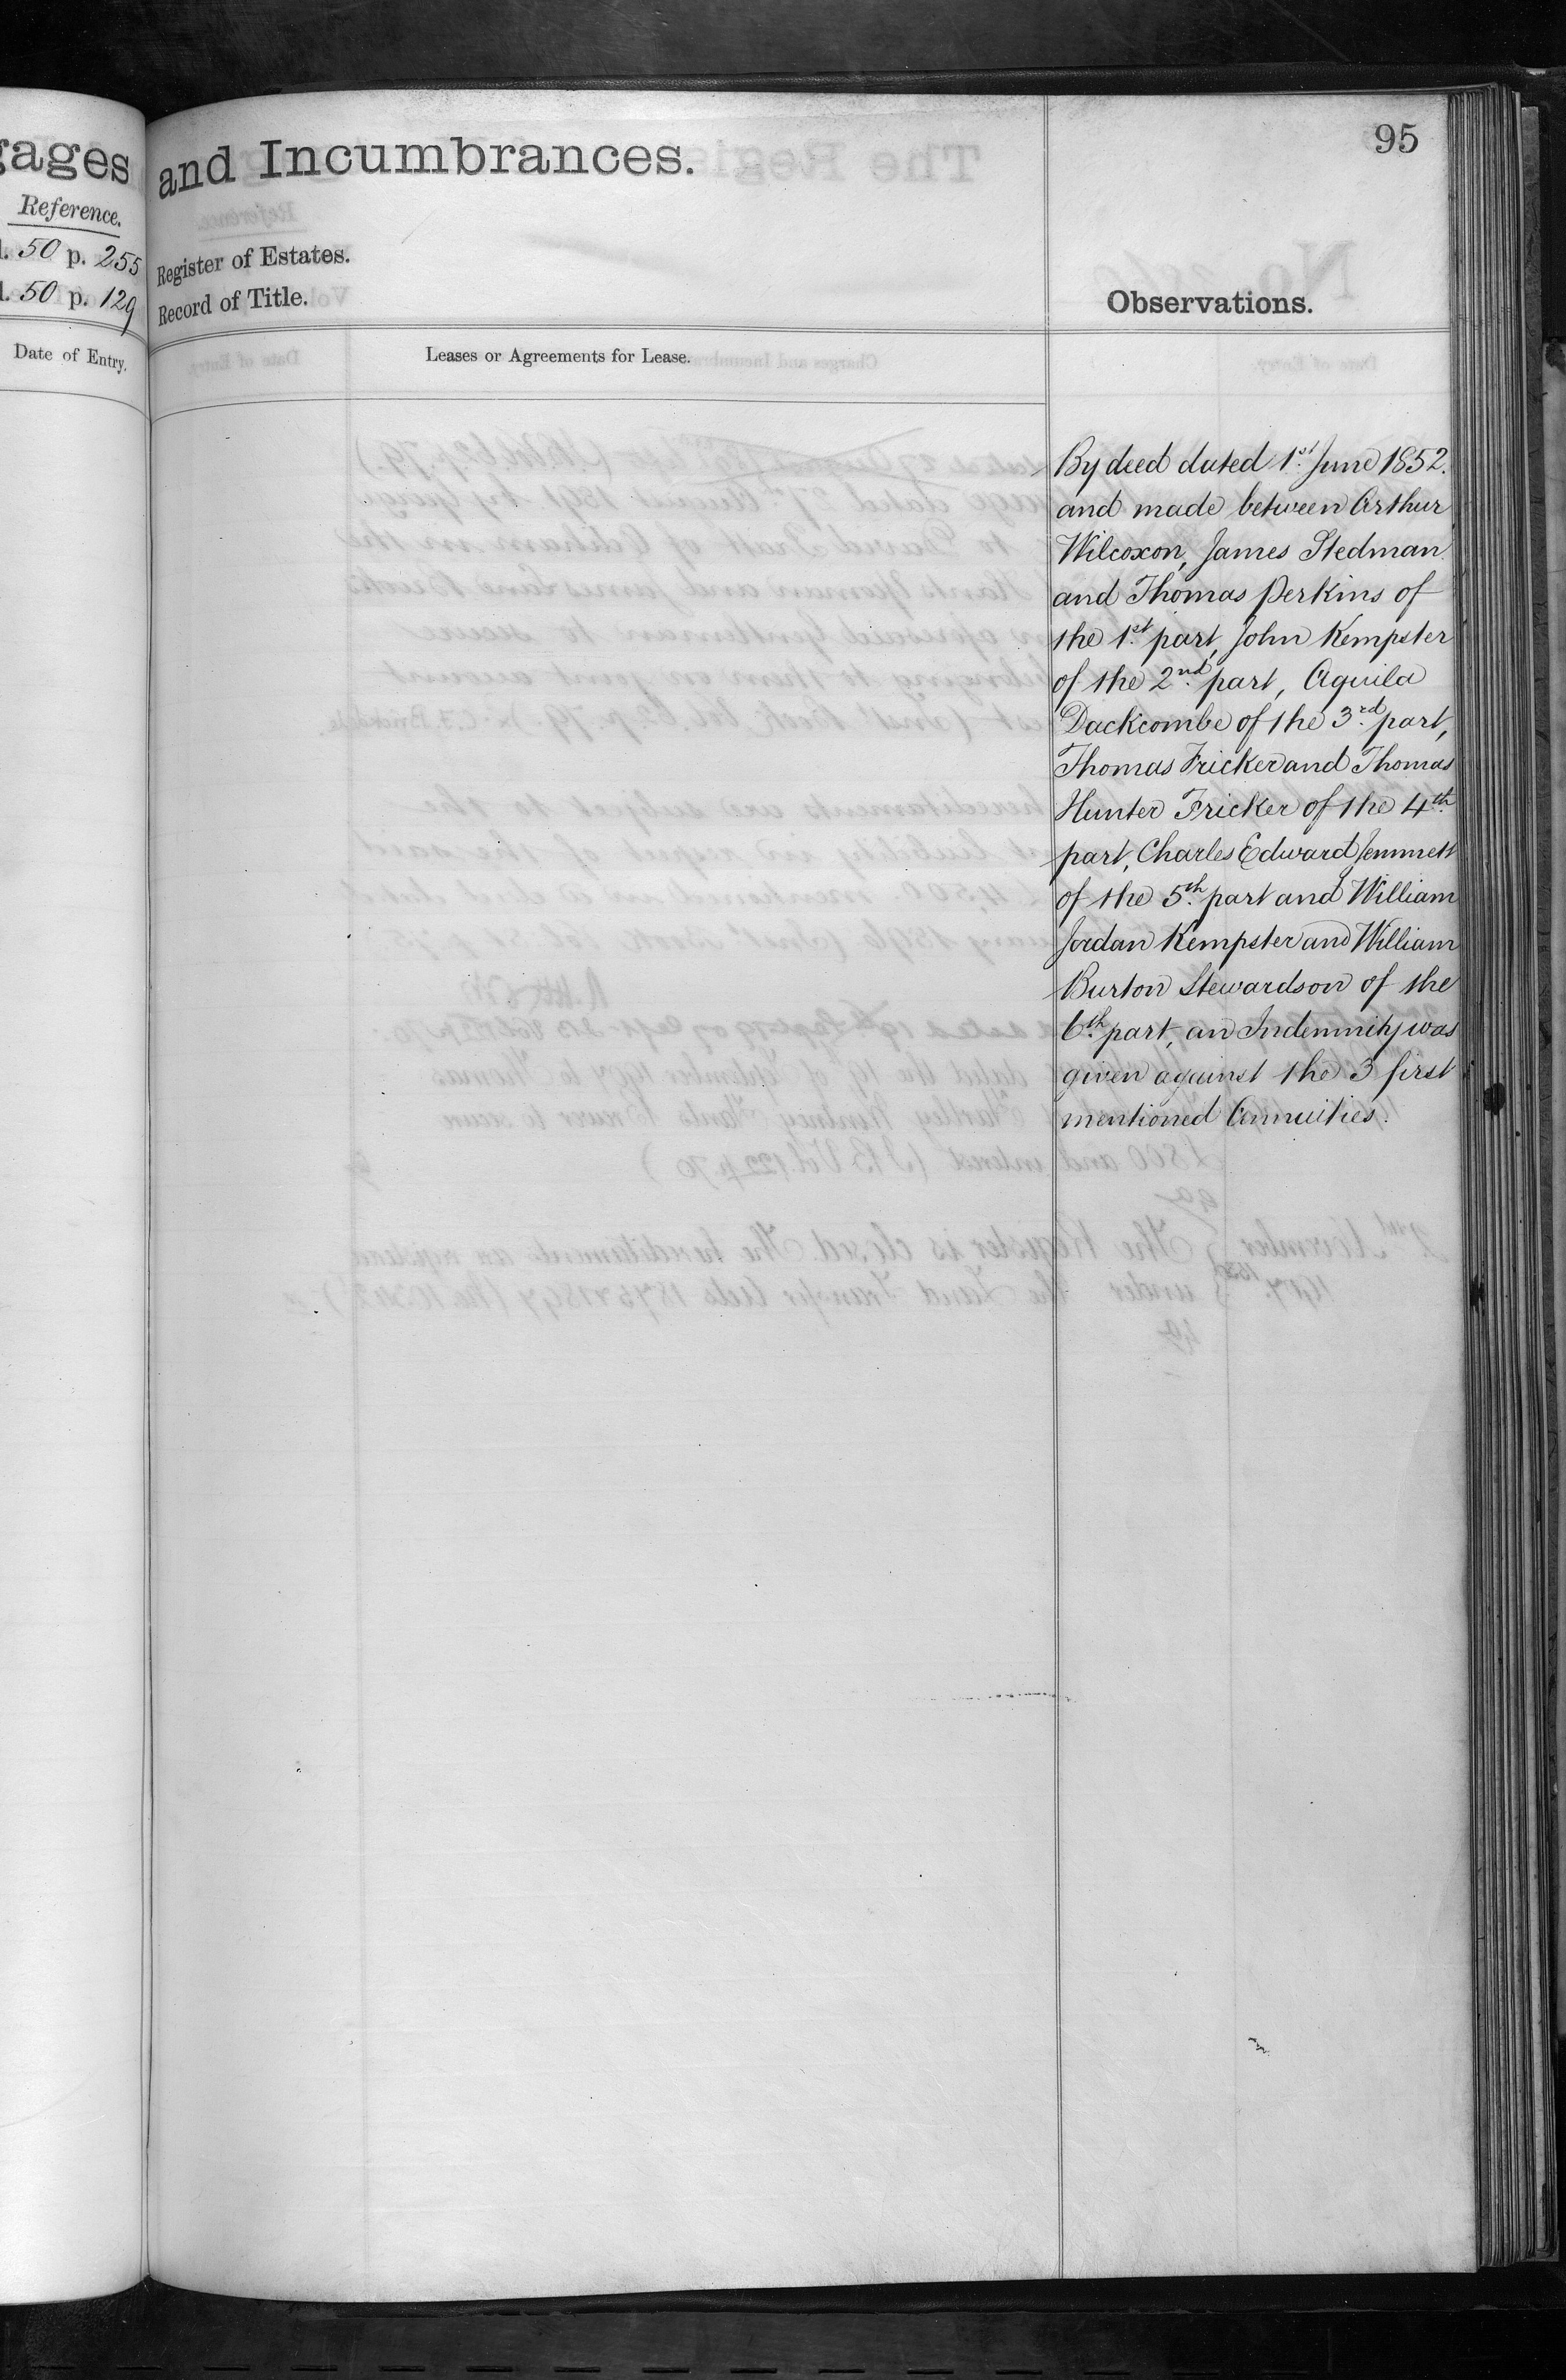 gages
Reference.
50 p. 255
50 p. 129
Date of Entry.
and Incumbrances.
95
Register of Estates.
Record of Title.
Observations.
Leases or Agreements for Lease.
By deed dated 1st June 1852.
and made between Arthur
Wilcoxon, James Stedman
and Thomas Perkins of
the 1st part, John Kempster
of the 2nd part, Aquila
Dackcombe of the 3rd part,
Thomas Fricker and Thomas
Hunter Fricker of the 4th
part, Charles Edward Jemmett
of the 5th part and William
Jordan Kempster and William
Burton Stewardson of the
6th part, an Indemnity was
given against the 3 first
mentioned Annuities.